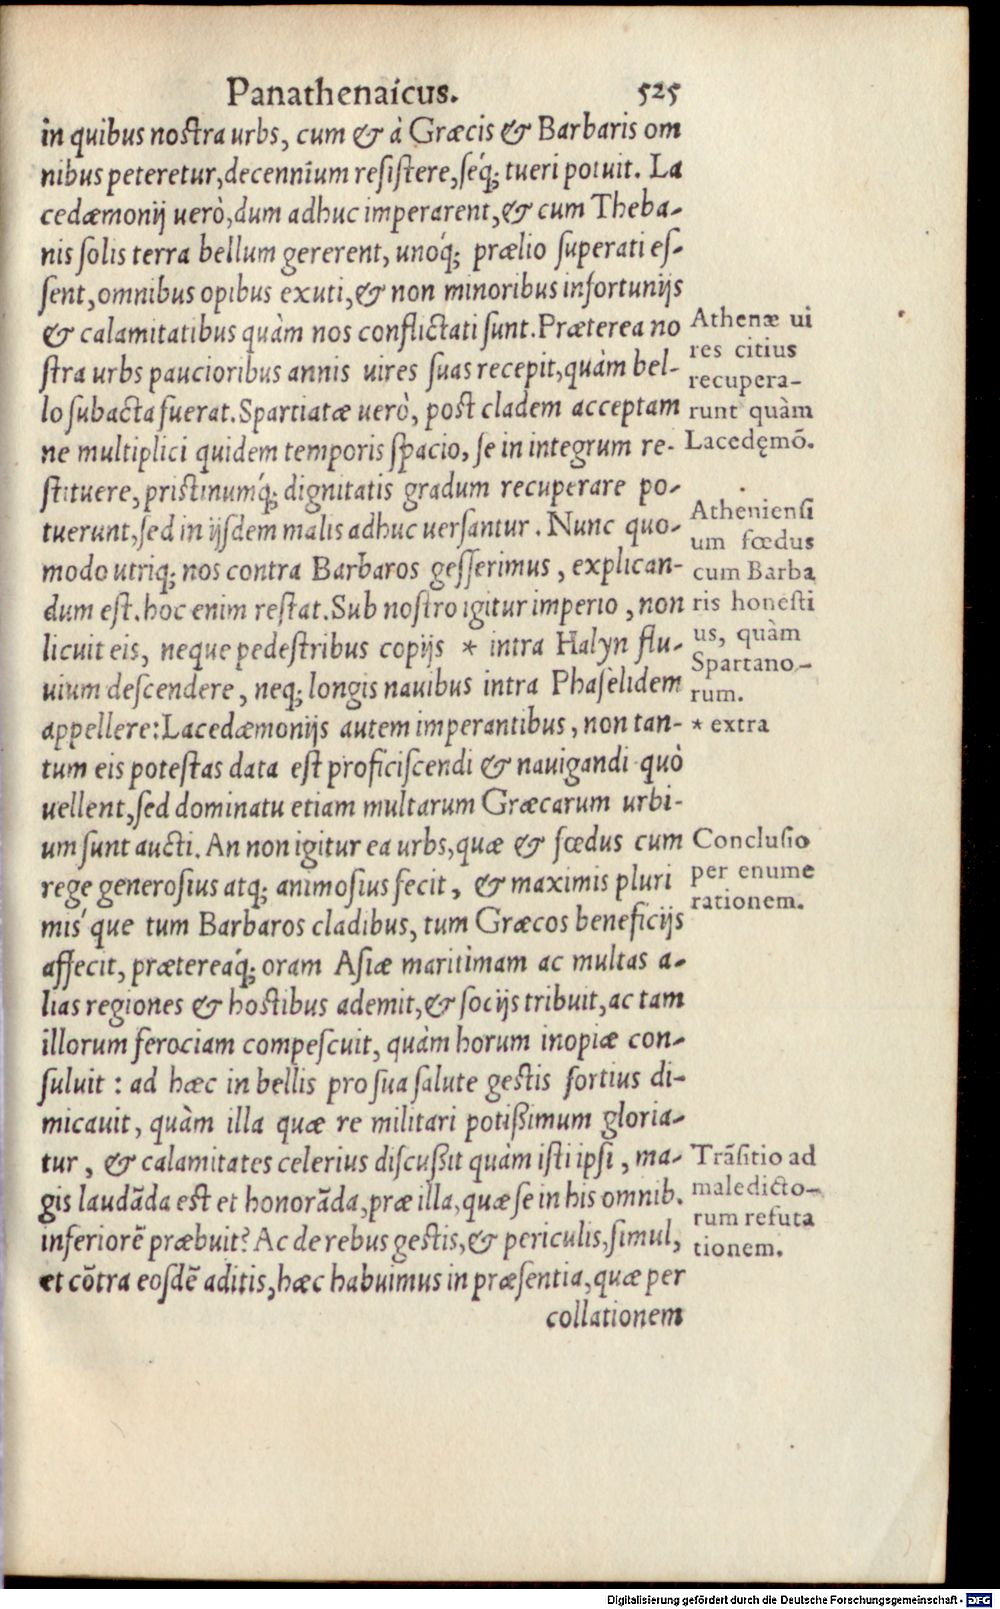 Panathenaicus. 525
in quibus nostra urbs, cum & à Græcis & Barbaris om
nibus peteretur, decennium resistere, seq́; tueri potuit. La
cedæmonij uerò, dum adhuc imperarent, & cum Theba-
nis solis terra bellum gererent, unoq́; prælio superati es-
sent, omnibus opibus exuti, & non minoribus infortunijs
& calamitatibus quàm nos conflictati sunt. Præterea no
stra urbs paucioribus annis uires suas recepit, quàm bel-
lo subacta fuerat. Spartiatæ uerò, post cladem acceptam
ne multiplici quidem temporis spacio, se in integrum re-
stituere, pristinumq́; dignitatis gradum recuperare po-
tuerunt, sed in ijsdem malis adhuc uersantur. Nunc quo-
modo utriq; nos contra Barbaros gesserimus, explican-
dum est. hoc enim restat. Sub nostro igitur imperio, non
licuit eis, neque pedestribus copijs * intra Halyn flu-
uium descendere, neq; longis nauibus intra Phasèlidem
appellere: Lacedæmonijs autem imperantibus, non tan-
tum eis potestas data est proficiscendi & nauigandi quò
uellent, sed dominatu etiam multarum Græcarum urbi-
um sunt aucti. An non igitur ea urbs, quæ & fœdus cum
rege generosius atq; animosius fecit, & maximis pluri
mis´que tum Barbaros cladibus, tum Græcos beneficijs
affecit, prætereaq́; oram Asiæ maritimam ac multas a-
lias regiones & hostibus ademit, & socijs tribuit, ac tam
illorum ferociam compescuit, quàm horum inopiæ con-
suluit: ad hæc in bellis pro sua salute gestis fortius di-
micauit, quàm illa quæ re militari potißimum gloria-
tur, & calamitates celerius discußit quàm isti ipsi, ma-
gis laudãda est et honorãda, præ illa, quæ se in his omnib.
inferiorẽ præbuit? Ac de rebus gestis, & periculis, simul,
et cõtra eosdẽ aditis, hæc habuimus in præsentia, quæ per
collationem
Athenæ ui
res citius
recupera-
runt quàm
Lacedęmõ.
Atheniensi
um fœdus
cum Barba
ris honesti
us, quàm
Spartano-
rum.
* extra
Conclusio
per enume
rationem.
Trãsitio ad
maledicto-
rum refuta
tionem.
Digitalisierung gefördert durch die Deutsche Forschungsgemeinschaft - DFG